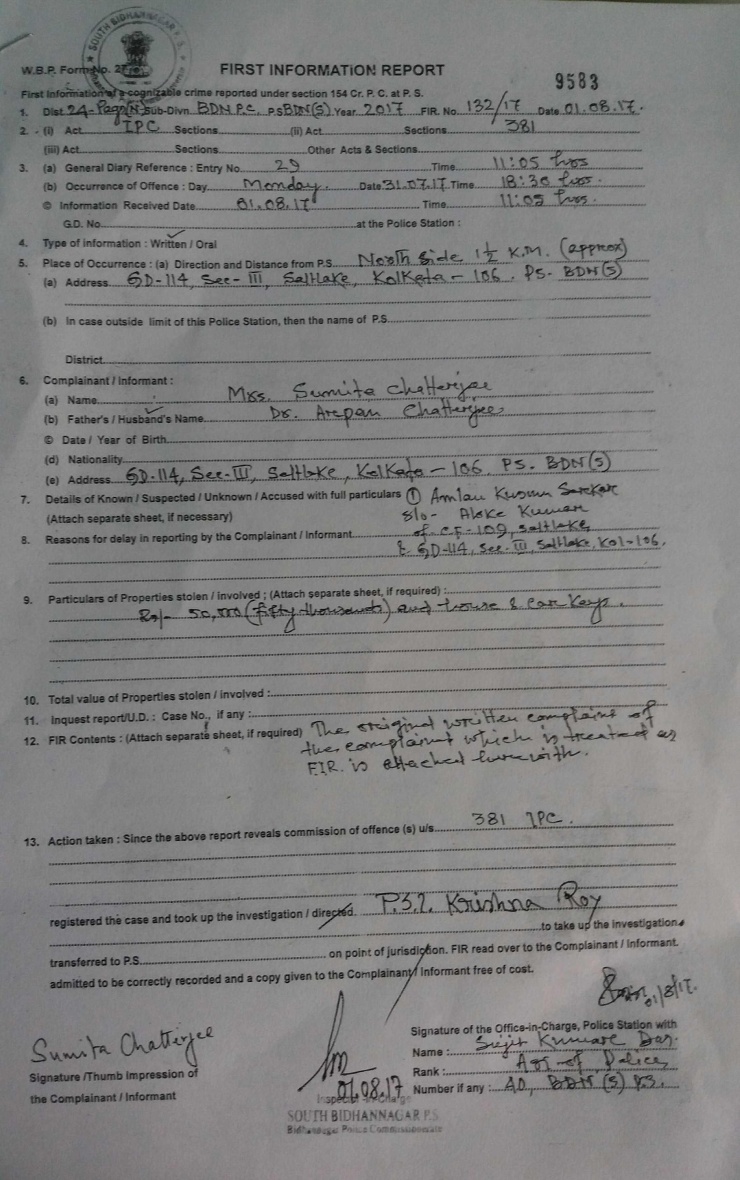 SOUTH BIDHANNAGAR P.S.
W.B.P. Form No. 27
FIRST INFORMATION REPORT
9583
First Information of a cognizable crime reported under section 154 Cr. P. C. at P. S.
1. Dist. 24-Pags(N) Sub-Divn. BDN P.C. P.S BDN(S) Year 2017 FIR. No. 132/17 Date 01.08.17.
2. (i) Act IPC Sections (ii) Act Sections 381
(iii) Act Sections Other Acts & Sections
3. (a) General Diary Reference : Entry No. 29 Time 11:05 hrs
(b) Occurrence of Offence : Day Monday. Date 31.07.17 Time 18:30 hrs.
© Information Received Date 01.08.17 Time 11:05 hrs.
G.D. No. at the Police Station :
4. Type of information : Written / Oral
5. Place of Occurrence : (a) Direction and Distance from P.S. North Side 1½ K.M. (approx)
(a) Address GD-114, Sec-III, Saltlake, Kolkata - 106. PS- BDN(S)
(b) In case outside limit of this Police Station, then the name of P.S.
District
6. Complainant / Informant :
(a) Name Mrs. Sumita Chatterjee
(b) Father's / Husband's Name Dr. Arepan Chatterjee
© Date / Year of Birth
(d) Nationality
(e) Address GD-114, Sec-III, Saltlake, Kolkata - 106 PS. BDN(S)
7. Details of Known / Suspected / Unknown / Accused with full particulars ① Amlan Kumar Sarkar
(Attach separate sheet, if necessary) S/o- Aloke Kumar
of CF-109, Saltlake
8. Reasons for delay in reporting by the Complainant / Informant
& GD-114, Sec-III, Saltlake, Kol-106.
9. Particulars of Properties stolen / involved ; (Attach separate sheet, if required) :
Rs/- 50,000 (fifty thousands) and house & car keys.
10. Total value of Properties stolen / involved :
11. Inquest report/U.D. : Case No., if any :
12. FIR Contents : (Attach separate sheet, if required) The original written complaint of
the complaint which is treated as
FIR. is attached herewith.
13. Action taken : Since the above report reveals commission of offence (s) u/s 381 IPC.
registered the case and took up the investigation / directed. P.S.I. Krishna Roy
to take up the investigation
transferred to P.S. on point of jurisdiction. FIR read over to the Complainant / Informant.
admitted to be correctly recorded and a copy given to the Complainant / Informant free of cost.
01/8/17.
Signature of the Office-in-Charge, Police Station with
Sumita Chatterjee
Name : Sujit Kumar Das.
Signature /Thumb Impression of
Rank : ASI of Police
the Complainant / Informant
01.08.17
Number if any : AD, BDN (S) P.S.
Inspector-in-Charge
SOUTH BIDHANNAGAR P.S
Bidhannagar Police Commissionerate